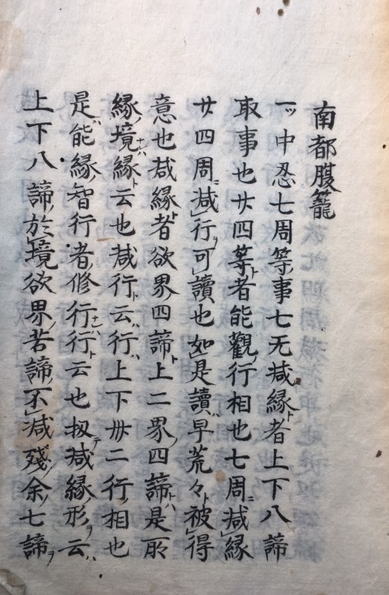 南都腹籠
一中忍七周等事七无减縁者上下八諦
取事也廿四等者能觀行相也七周减縁
廿四周减行可讀也如是讀早荒々被得
意也减縁者欲界四諦上二界四諦是所
縁境縁云也减行云行上下卅二行相也
是能縁智行者修行行云也扨减縁形云
上下八諦於境欲界苦諦不减殘余七諦